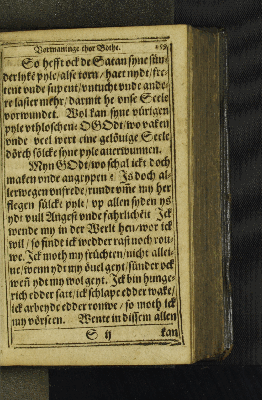 Vormaninge thor Bothe.
So hefft ock de Satan syne sün-
derlyke pyle/alse torn/haet nydt/fre-
tent vnde supent/vntucht vnde ande-
re laster mehr/darmit he vnse Seele
vorwundet. Wol kan syne vürigen
pyle vthloschen: O GOdt/wo vaken
vnde veel wert eine gelövige Seele
dörch sölcke syne pyle auerwunnen.
Myn GOdt/wo schal ickt doch
maken vnde angrypen? Js doch al-
lerwegen vnfrede/rundt vmme my her
flegen sülcke pyle/vp allen syden ys
ydt vull Angest vnde fahrlicheit Jck
wende my in der Werlt hen/wor ick
wil/so finde ick wedder rast noch rou-
we. Jck moth my früchten/nicht allei-
ne/wenn ydt my övel geyt/sünder ock
weñ ydt my wol geyt. Jck bin hunge-
rich edder satt/ick schlape edder wake/
ick arbeyde edder rouwe/so moth ick
my vörseen. Wente in dissem allen
S ij
kan